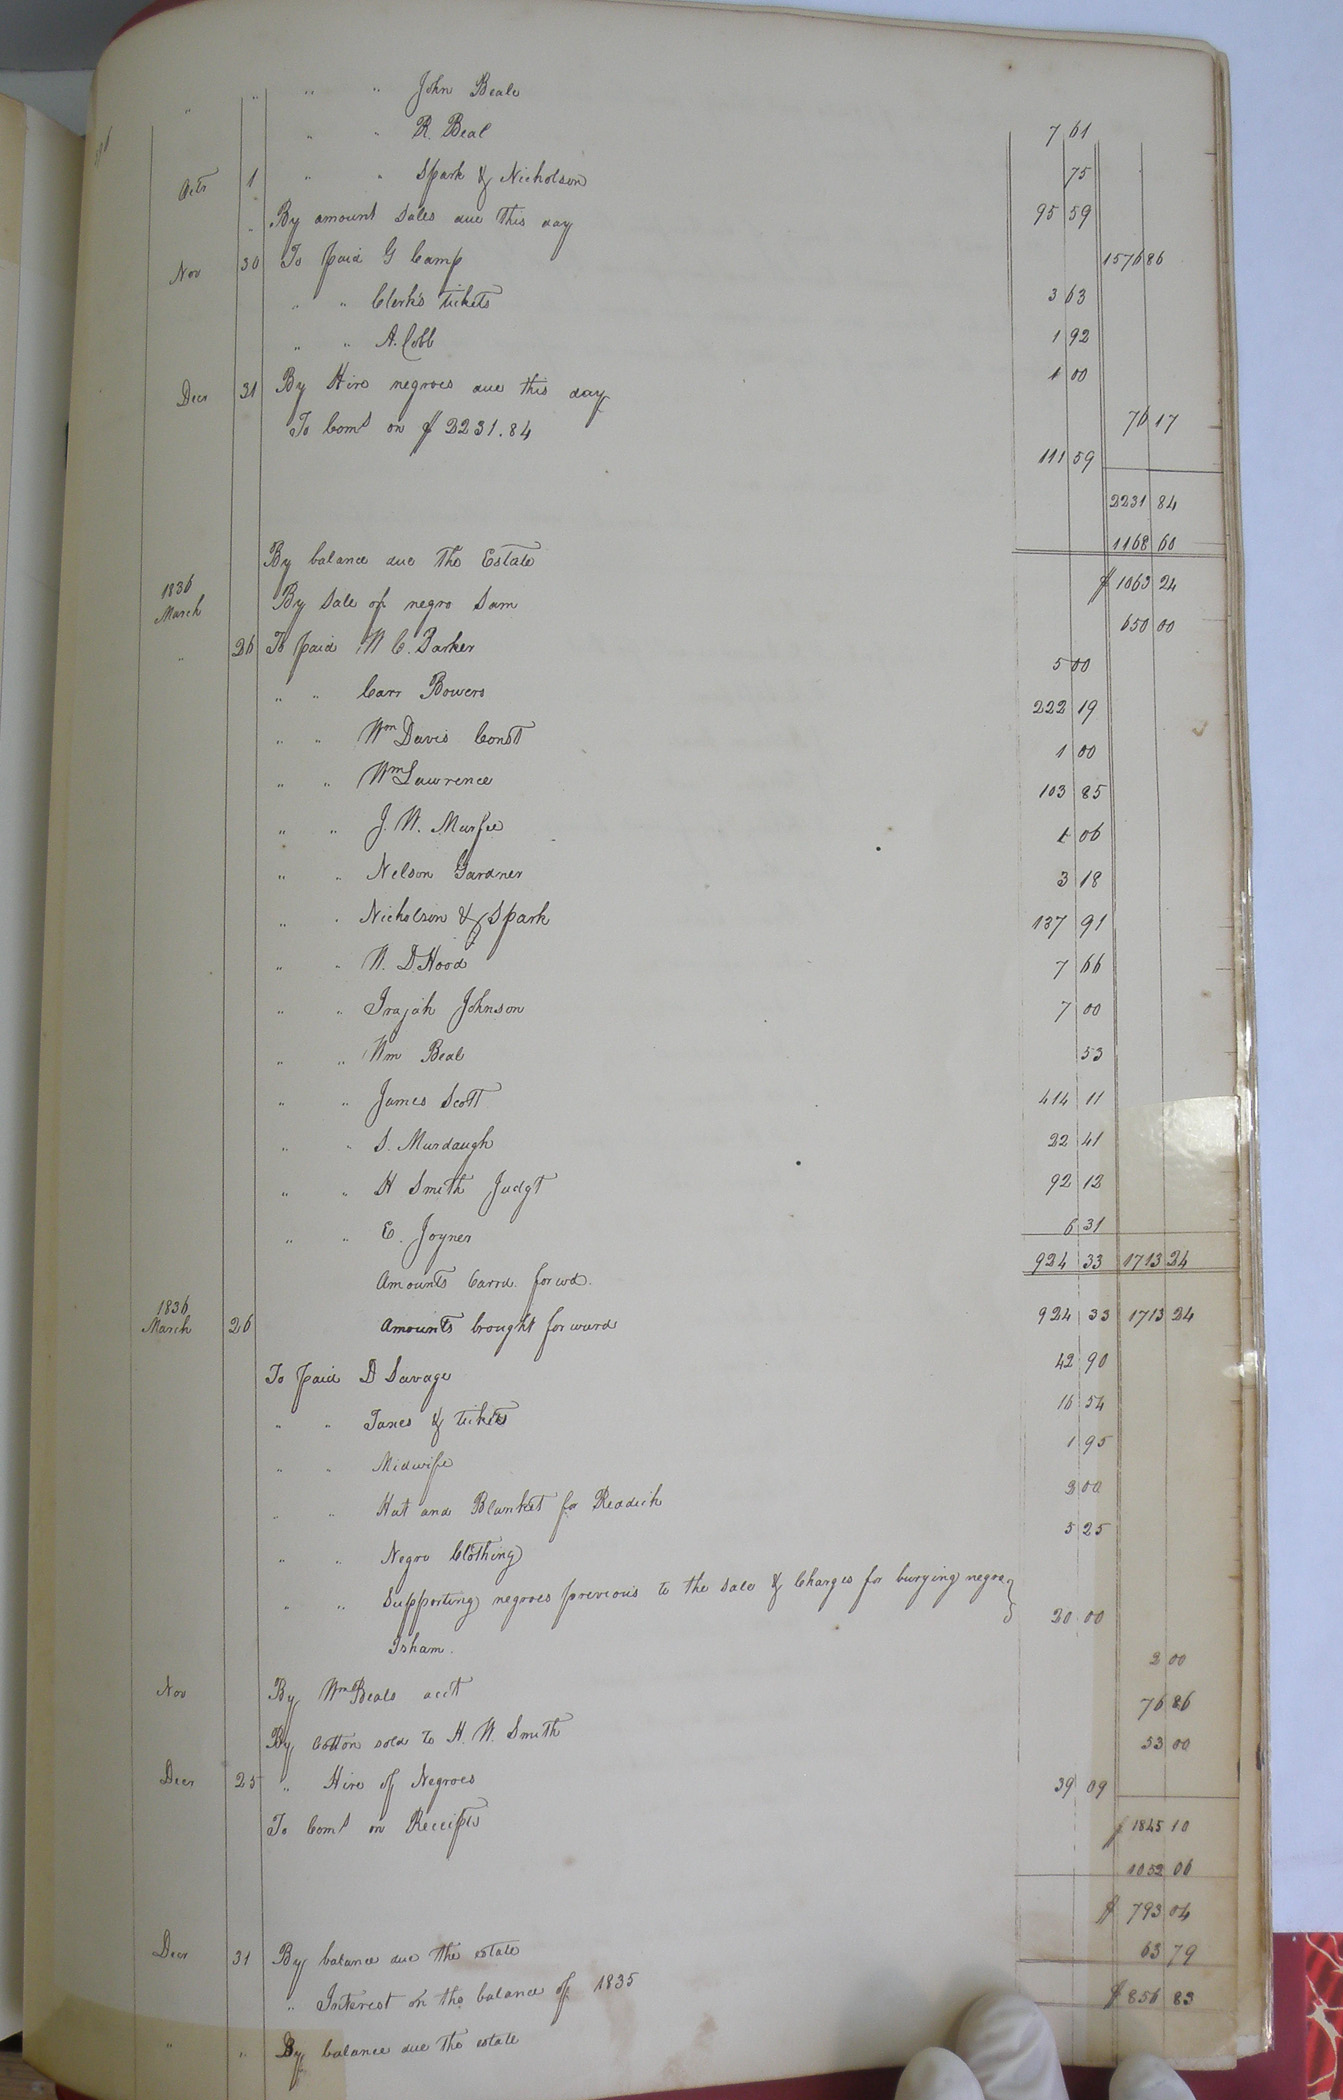 " " " " John Beale 7 61
" " R. Beal 75
Octr 1 " " Spark & Nicholson 95 59
" By amount Sales due this day 1576 86
Nov 30 To paid G Camp 3 63
" " Clerk's tickets 1 92
" " A. Cobb 1 00
Decr 31 By Hire negroes due this day 76 17
To Coms on $2231.84 111 59
2231 84
1168 60
By balance due the Estate $1063 24
1836
March By Sale of negro Sam 650 00
" 26 To paid W C. Barker 5 00
" " Carr Bowers 222 19
" " Wm Davis Const 1 00
" " Wm Lawrence 103 85
" " J. W. Murfee 1 06
" " Nelson Gardner 3 18
" " Nicholson & Spark 137 91
" " W. D Hood 7 66
" " Trajah Johnson 7 00
" " Wm Beal 53
" " James Scott 414 11
" " S. Murdaugh 22 41
" " H Smith Judgt 92 12
" " E. Joyner 6 31
Amounts Carrd. forwd. 924 33 1713 24
1836
March 26 Amounts brought forward 924 33 1713 24
To paid D Savage 42 90
" " Taxes & tickets 16 54
" " Midwife 1 95
" " Hat and Blanket for Reddick 2 00
" " Negro Clothing 5 25
" " Supporting negroes previous to the sale & Charges for burying negro
Isham. 20 00
Nov By Wm Beals acct 2 00
By Cotton sold to H. W. Smith 76 86
Decr 25 " Hire of Negroes 53 00
To Coms on Receipts 39 09
$1845 10
1052 06
Decr 31 By balance due the estate $793 04
" Interest on the balance of 1835 63 79
" " By balance due the estate $856 83